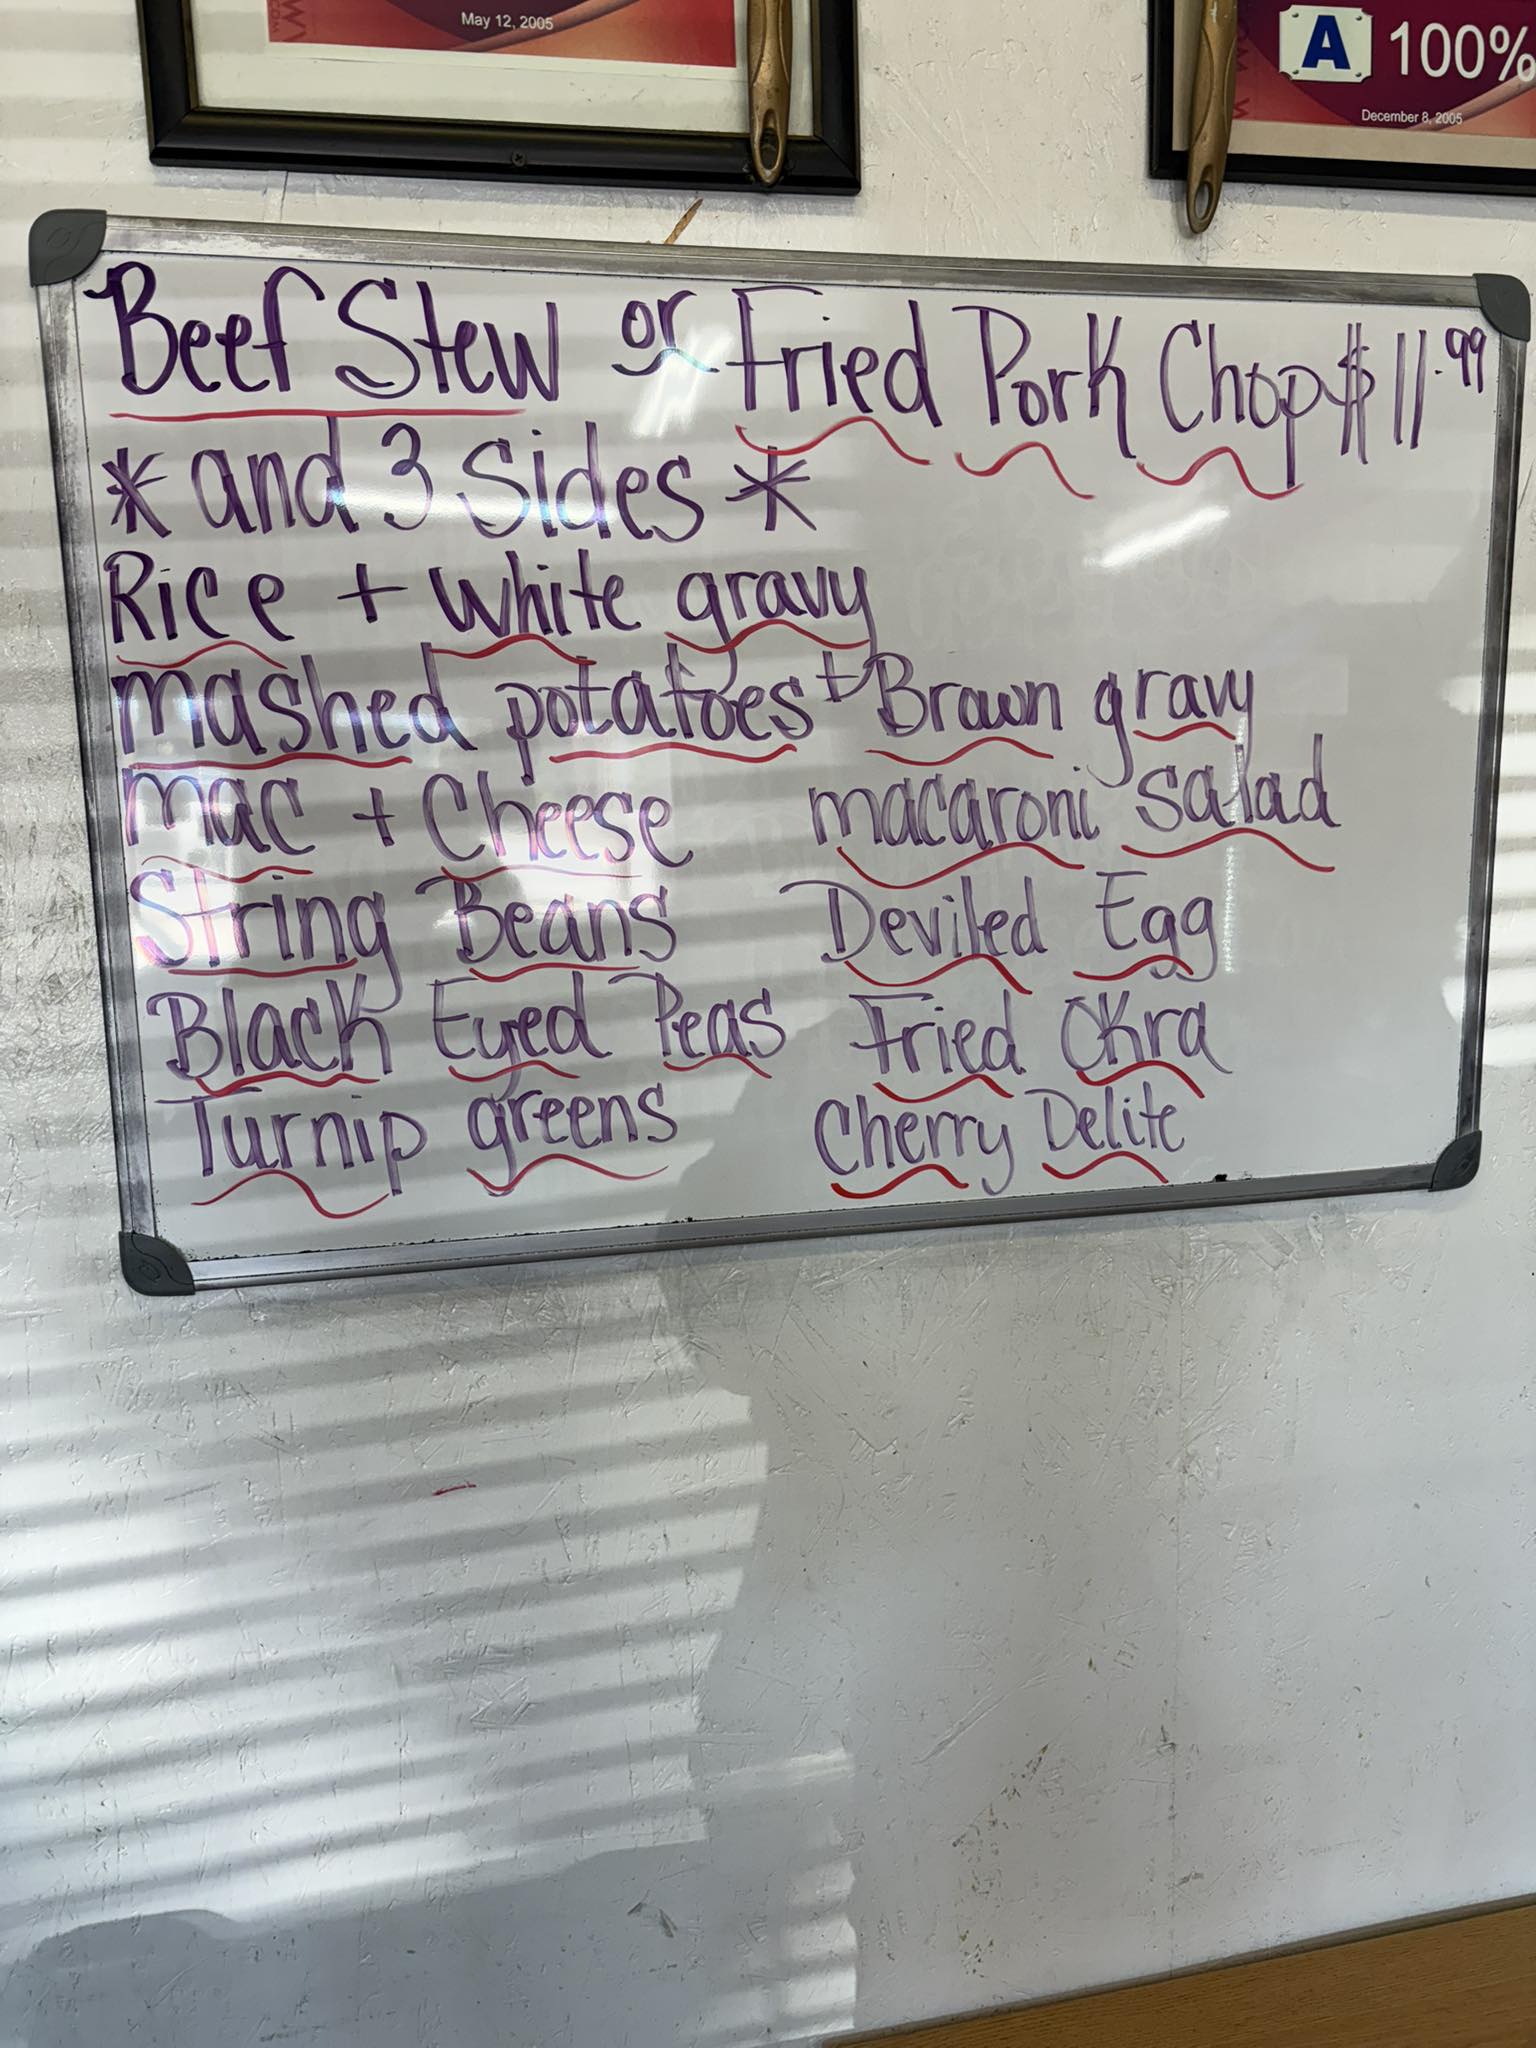 May 12, 2005
A 100%
December 8, 2005
Beef Stew or Fried Pork Chop $11.99
* and 3 Sides *
Rice + white gravy
mashed potatoes + Brown gravy
mac + Cheese macaroni salad
String Beans Deviled Egg
Black Eyed Peas Fried Okra
Turnip greens Cherry Delite